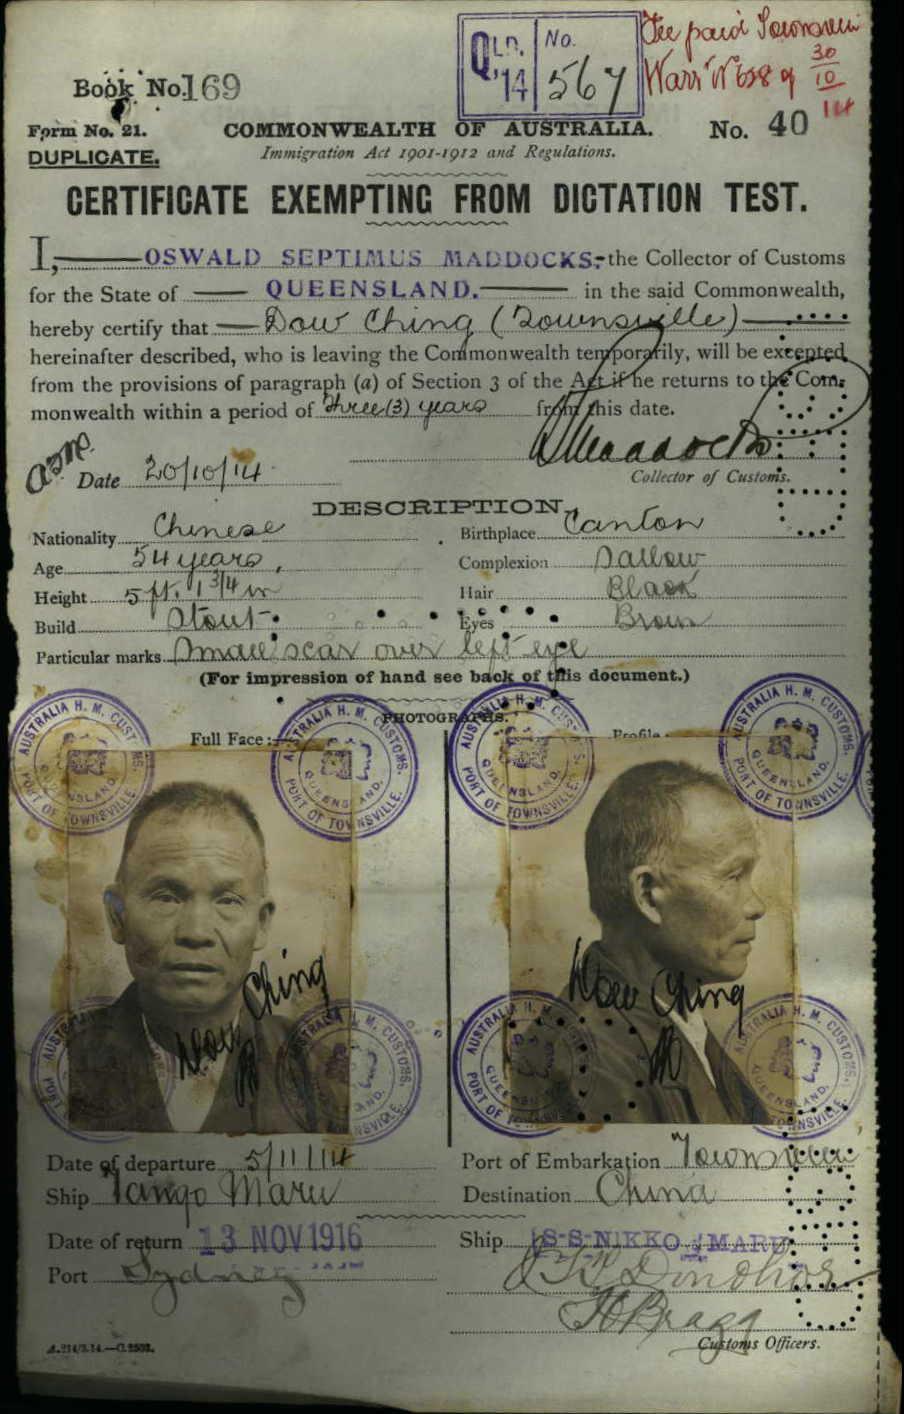 QLD. '14 No. 567
Fee paid Townsville
30/10/14
Book No. 169
Form No. 21.
COMMONWEALTH OF AUSTRALIA.
No. 40
DUPLICATE.
Immigration Act 1901-1912 and Regulations.
CERTIFICATE EXEMPTING FROM DICTATION TEST.
I, OSWALD SEPTIMUS MADDOCKS, the Collector of Customs
for the State of QUEENSLAND. in the said Commonwealth,
hereby certify that Dow Ching (Townsville)
hereinafter described, who is leaving the Commonwealth temporarily, will be excepted
from the provisions of paragraph (a) of Section 3 of the Act if he returns to the Com-
monwealth within a period of three (3) years from this date.
Maddocks
Date 20/10/14
Collector of Customs.
DESCRIPTION.
Nationality Chinese
Birthplace Canton
Age 54 years,
Complexion Sallow
Height 5 ft. 1 3/4 in
Hair Black
Build Stout
Eyes Brown
Particular marks Small scar over left eye
(For impression of hand see back of this document.)
PHOTOGRAPHS.
Full Face:
Profile:
AUSTRALIA H. M. CUSTOMS. QUEENSLAND. PORT OF TOWNSVILLE.
AUSTRALIA H. M. CUSTOMS. QUEENSLAND. PORT OF TOWNSVILLE.
AUSTRALIA H. M. CUSTOMS. QUEENSLAND.
AUSTRALIA H. M. CUSTOMS. QUEENSLAND. PORT OF TOWNSVILLE.
Dow Ching
Dow Ching
AUSTRALIA PORT
AUSTRALIA H. M. CUSTOMS. TOWNSVILLE.
AUSTRALIA H. M. QUEENSLAND PORT OF TOWNSVILLE
AUSTRALIA H. M. CUSTOMS. QUEENSLAND. TOWNSVILLE.
Date of departure 5/11/14
Port of Embarkation Townsville
Ship Tango Maru
Destination China
Date of return 13 NOV 1916
Ship S-S-NIKKO MARU
Port Sydney
Donohoe
H Bragg
Customs Officers.
A.214/3.14.—C.2503.